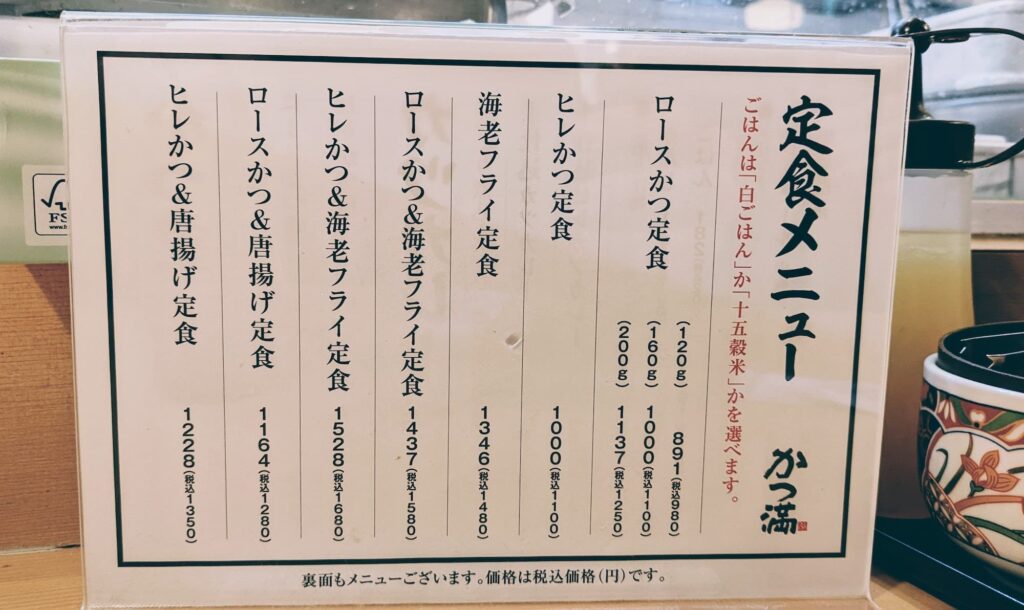 定食メニュー かつ満
ごはんは「白ごはん」か「十五穀米」かを選べます。
ロースかつ定食
(120g) 891(税込980)
(160g) 1000(税込1100)
(200g) 1137(税込1250)
ヒレかつ定食 1000(税込1100)
海老フライ定食 1346(税込1480)
ロースかつ&海老フライ定食 1437(税込1580)
ヒレかつ&海老フライ定食 1528(税込1680)
ロースかつ&唐揚げ定食 1164(税込1280)
ヒレかつ&唐揚げ定食 1228(税込1350)
裏面もメニューございます。価格は税込価格(円)です。